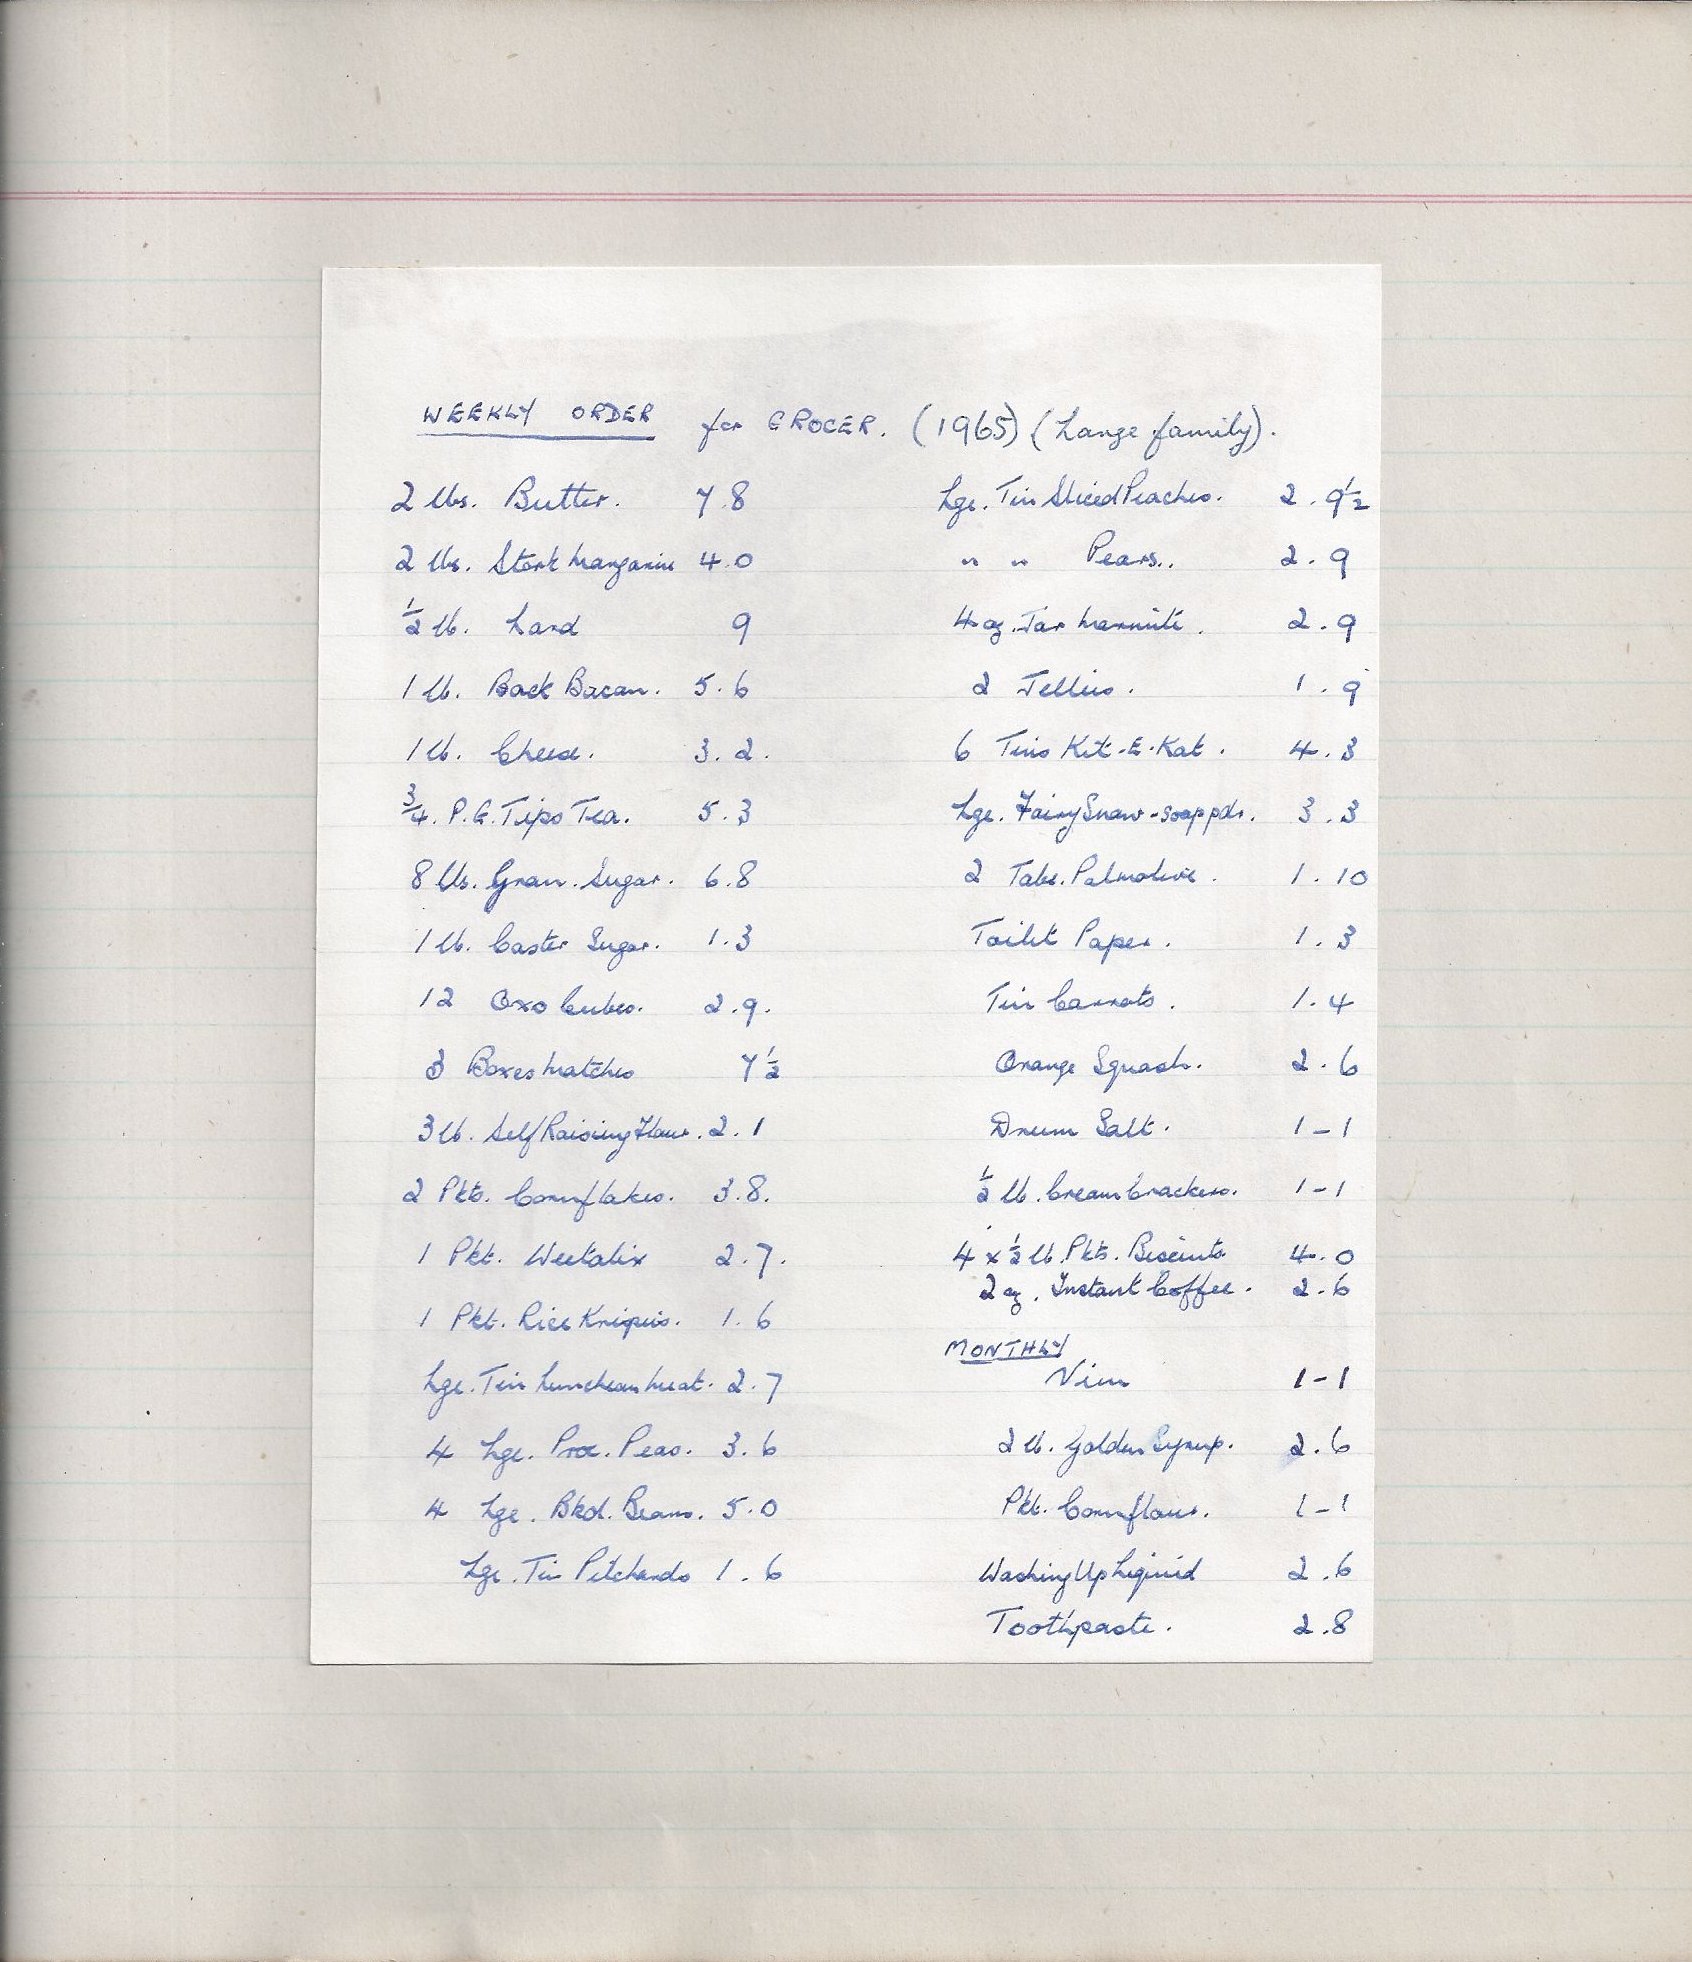 WEEKLY ORDER for GROCER. (1965) (Large family).
2 lbs. Butter. 7.8
2 lbs. Stork Margarine 4.0
½ lb. Lard 9
1 lb. Back Bacon. 5.6
1 lb. Cheese. 3.2.
¾. P.G. Tips Tea. 5.3
8 lbs. Gran. Sugar. 6.8
1 lb. Caster Sugar. 1.3
12 Oxo Cubes. 2.9.
3 Boxes Matches 7½
3 lb. Self Raising Flour. 2.1
2 Pkts. Cornflakes. 3.8.
1 Pkt. Weetabix 2.7.
1 Pkt. Rice Krispies. 1.6
Lge. Tin Luncheon Meat. 2.7
4 Lge. Proc. Peas. 3.6
4 Lge. Bkd. Beans. 5.0
Lge. Tin Pilchards 1.6
Lge. Tin Sliced Peaches. 2.9½
" " Pears.. 2.9
4 oz. Jar Marmite. 2.9
2 Jellies. 1.9
6 Tins Kit-E-Kat. 4.3
Lge. Fairy Snow - soap pdr. 3.3
2 Tabs. Palmolive. 1.10
Toilet Paper. 1.3
Tin Carrots. 1.4
Orange Squash. 2.6
Drum Salt. 1-1
½ lb. Cream Crackers. 1-1
4 x ½ lb. Pkts. Biscuits 4.0
2 oz. Instant Coffee. 2.6
MONTHLY
Vim 1-1
2 lb. Golden Syrup. 2.6
Pkt. Cornflour. 1-1
Washing Up Liquid 2.6
Toothpaste. 2.8